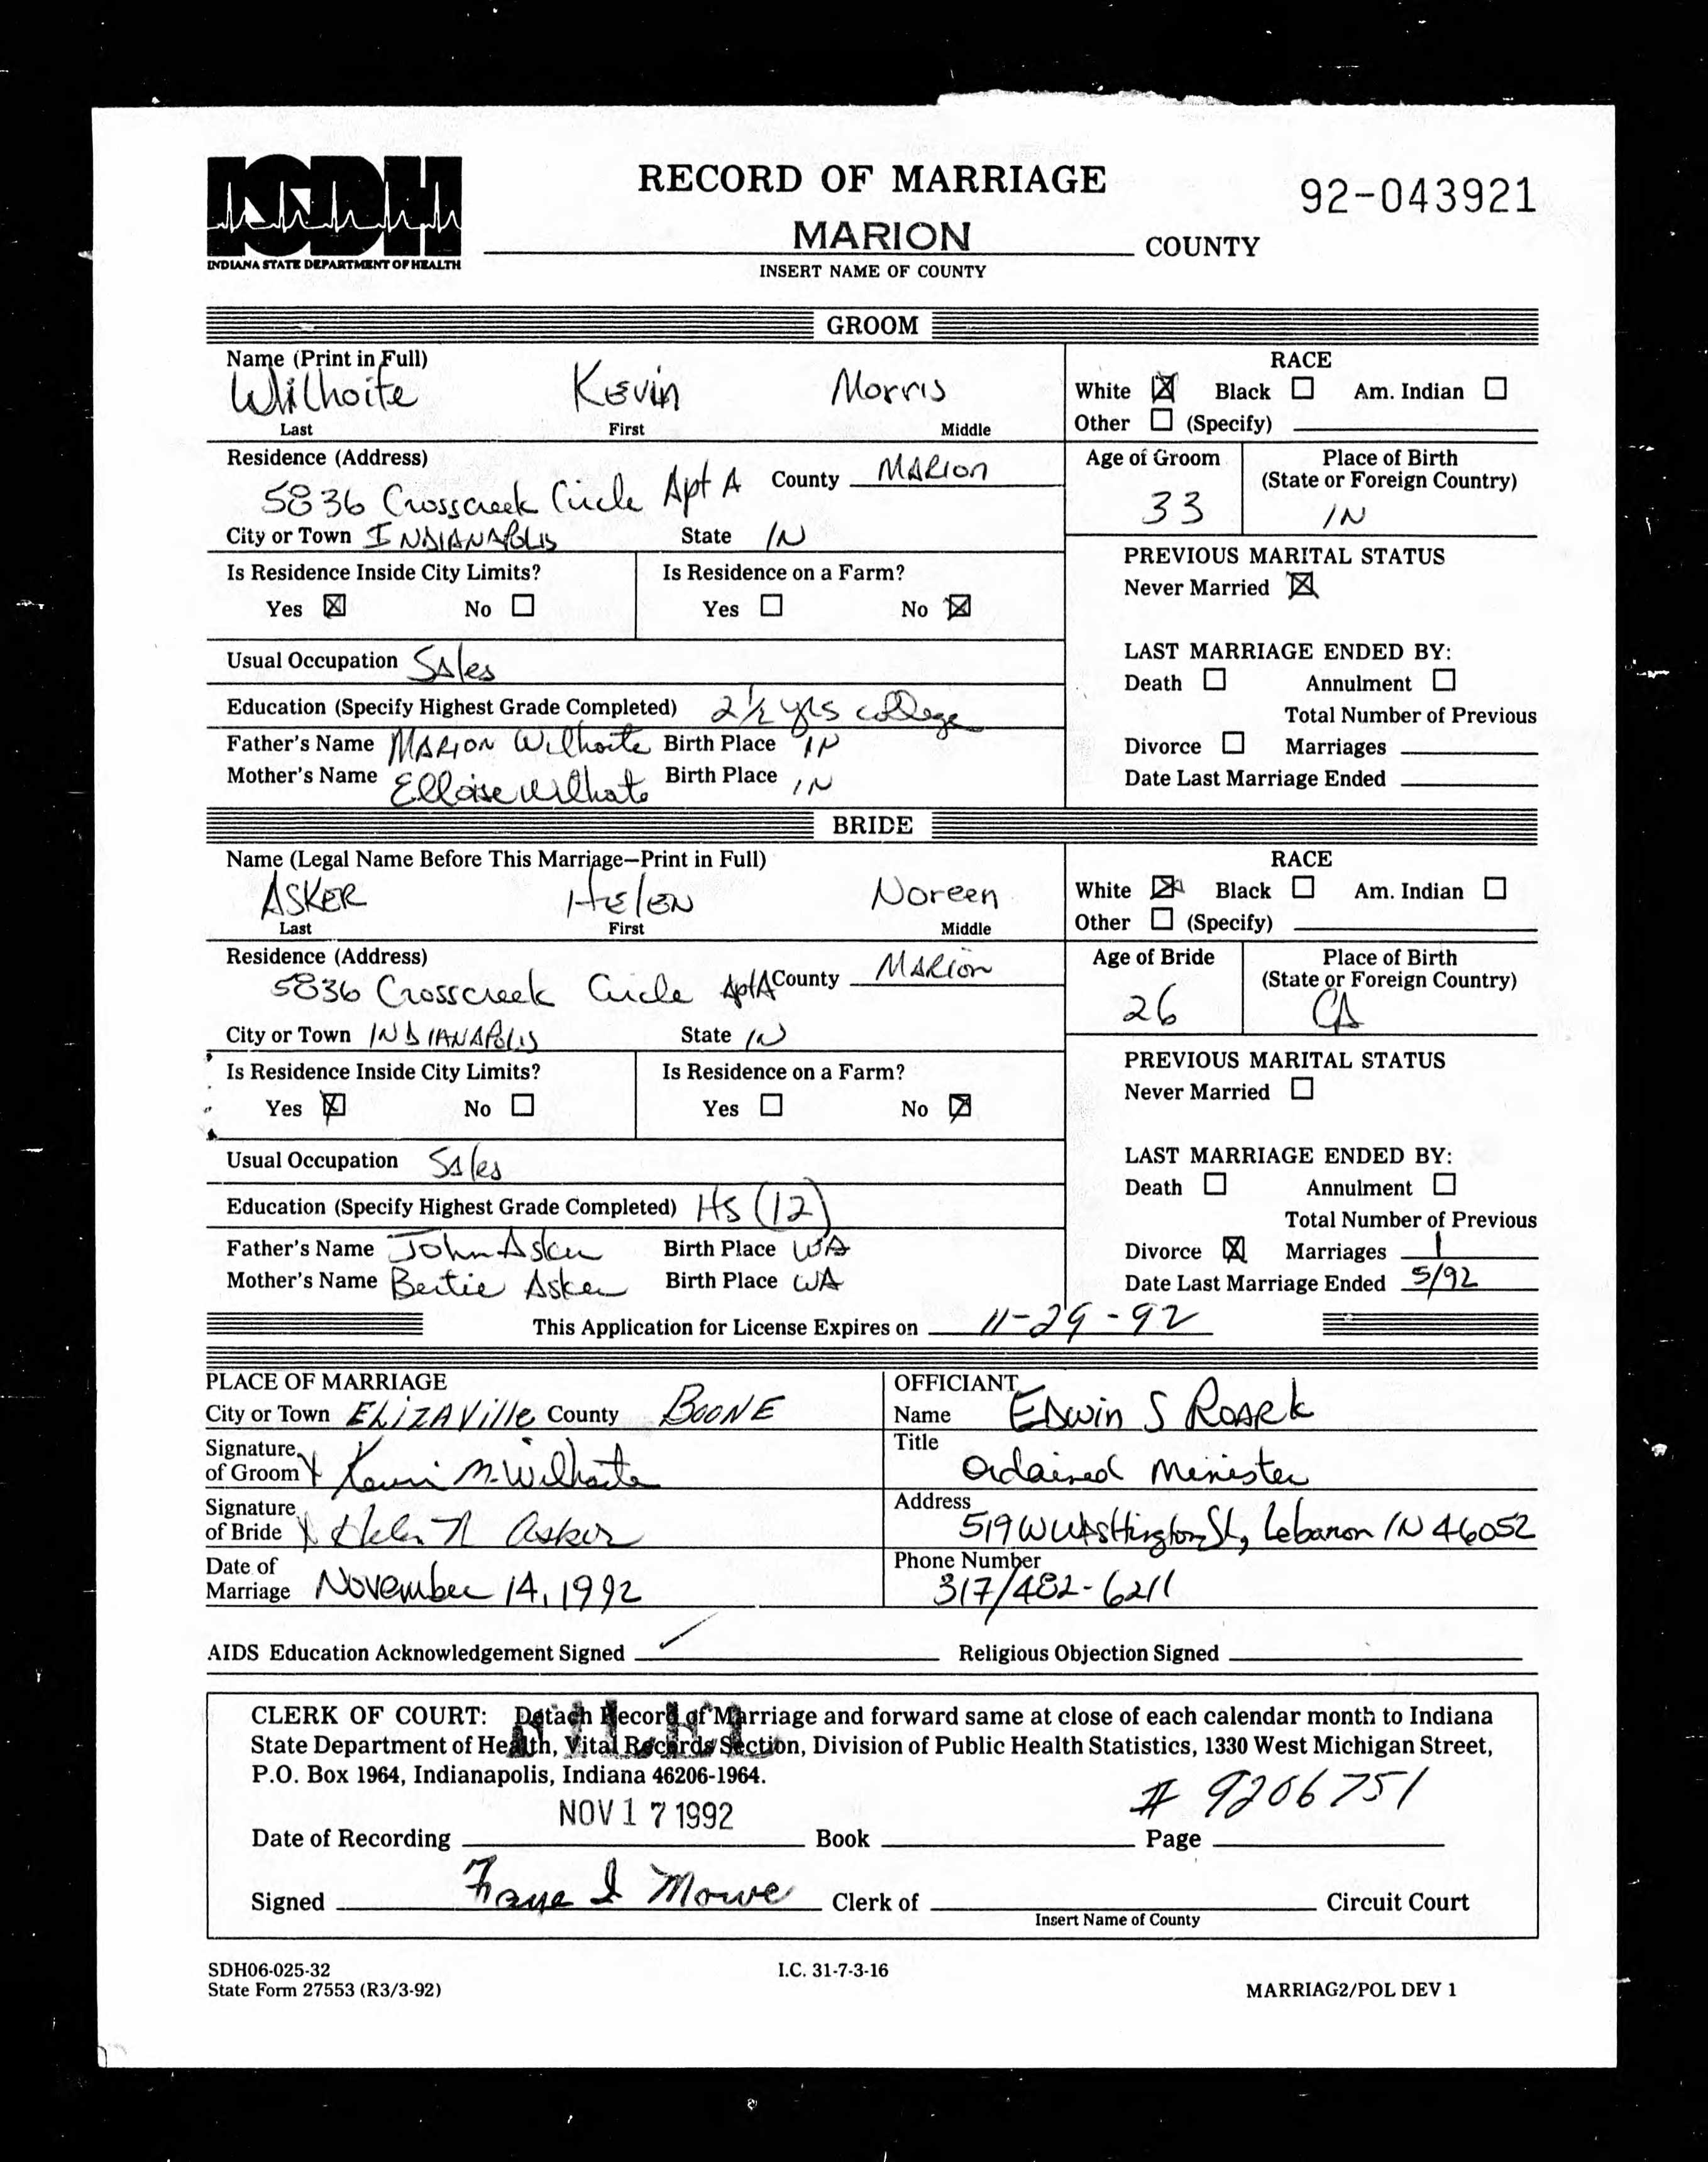 ISDH
INDIANA STATE DEPARTMENT OF HEALTH
RECORD OF MARRIAGE
92-043921
MARION COUNTY
INSERT NAME OF COUNTY
GROOM
Name (Print in Full)
Wilhoite Kevin Morris
Last First Middle
RACE
White ☒ Black ☐ Am. Indian ☐
Other ☐ (Specify)
Residence (Address)
5836 Crosscreek Circle Apt A County MARION
City or Town INDIANAPOLIS State IN
Age of Groom
33
Place of Birth
(State or Foreign Country)
IN
Is Residence Inside City Limits?
Yes ☒ No ☐
Is Residence on a Farm?
Yes ☐ No ☒
PREVIOUS MARITAL STATUS
Never Married ☒
Usual Occupation Sales
Education (Specify Highest Grade Completed) 2 1/2 yrs college
Father's Name MARION Wilhoite Birth Place IN
Mother's Name Elloise Wilhoite Birth Place IN
LAST MARRIAGE ENDED BY:
Death ☐ Annulment ☐
Total Number of Previous
Divorce ☐ Marriages
Date Last Marriage Ended
BRIDE
Name (Legal Name Before This Marriage—Print in Full)
ASKER HELEN Noreen
Last First Middle
RACE
White ☒ Black ☐ Am. Indian ☐
Other ☐ (Specify)
Residence (Address)
5836 Crosscreek Circle Apt A County MARION
City or Town INDIANAPOLIS State IN
Age of Bride
26
Place of Birth
(State or Foreign Country)
CA
Is Residence Inside City Limits?
Yes ☒ No ☐
Is Residence on a Farm?
Yes ☐ No ☒
PREVIOUS MARITAL STATUS
Never Married ☐
Usual Occupation Sales
Education (Specify Highest Grade Completed) HS (12)
Father's Name John Asker Birth Place WA
Mother's Name Bertie Asker Birth Place WA
LAST MARRIAGE ENDED BY:
Death ☐ Annulment ☐
Total Number of Previous
Divorce ☒ Marriages 1
Date Last Marriage Ended 5/92
This Application for License Expires on 11-29-92
PLACE OF MARRIAGE
City or Town ELIZAVILLE County BOONE
Signature
of Groom X Kevin M. Wilhoite
Signature
of Bride X Helen N Asker
Date of
Marriage November 14, 1992
OFFICIANT
Name Edwin S Roark
Title
Ordained Minister
Address
519 W Washington St, Lebanon IN 46052
Phone Number
317/482-6211
AIDS Education Acknowledgement Signed ✓
Religious Objection Signed
CLERK OF COURT: Detach Record of Marriage and forward same at close of each calendar month to Indiana
State Department of Health, Vital Records Section, Division of Public Health Statistics, 1330 West Michigan Street,
P.O. Box 1964, Indianapolis, Indiana 46206-1964.
# 9206751
NOV 17 1992
Date of Recording Book Page
Signed Faye I Mowe Clerk of Circuit Court
Insert Name of County
SDH06-025-32
State Form 27553 (R3/3-92)
I.C. 31-7-3-16
MARRIAG2/POL DEV 1